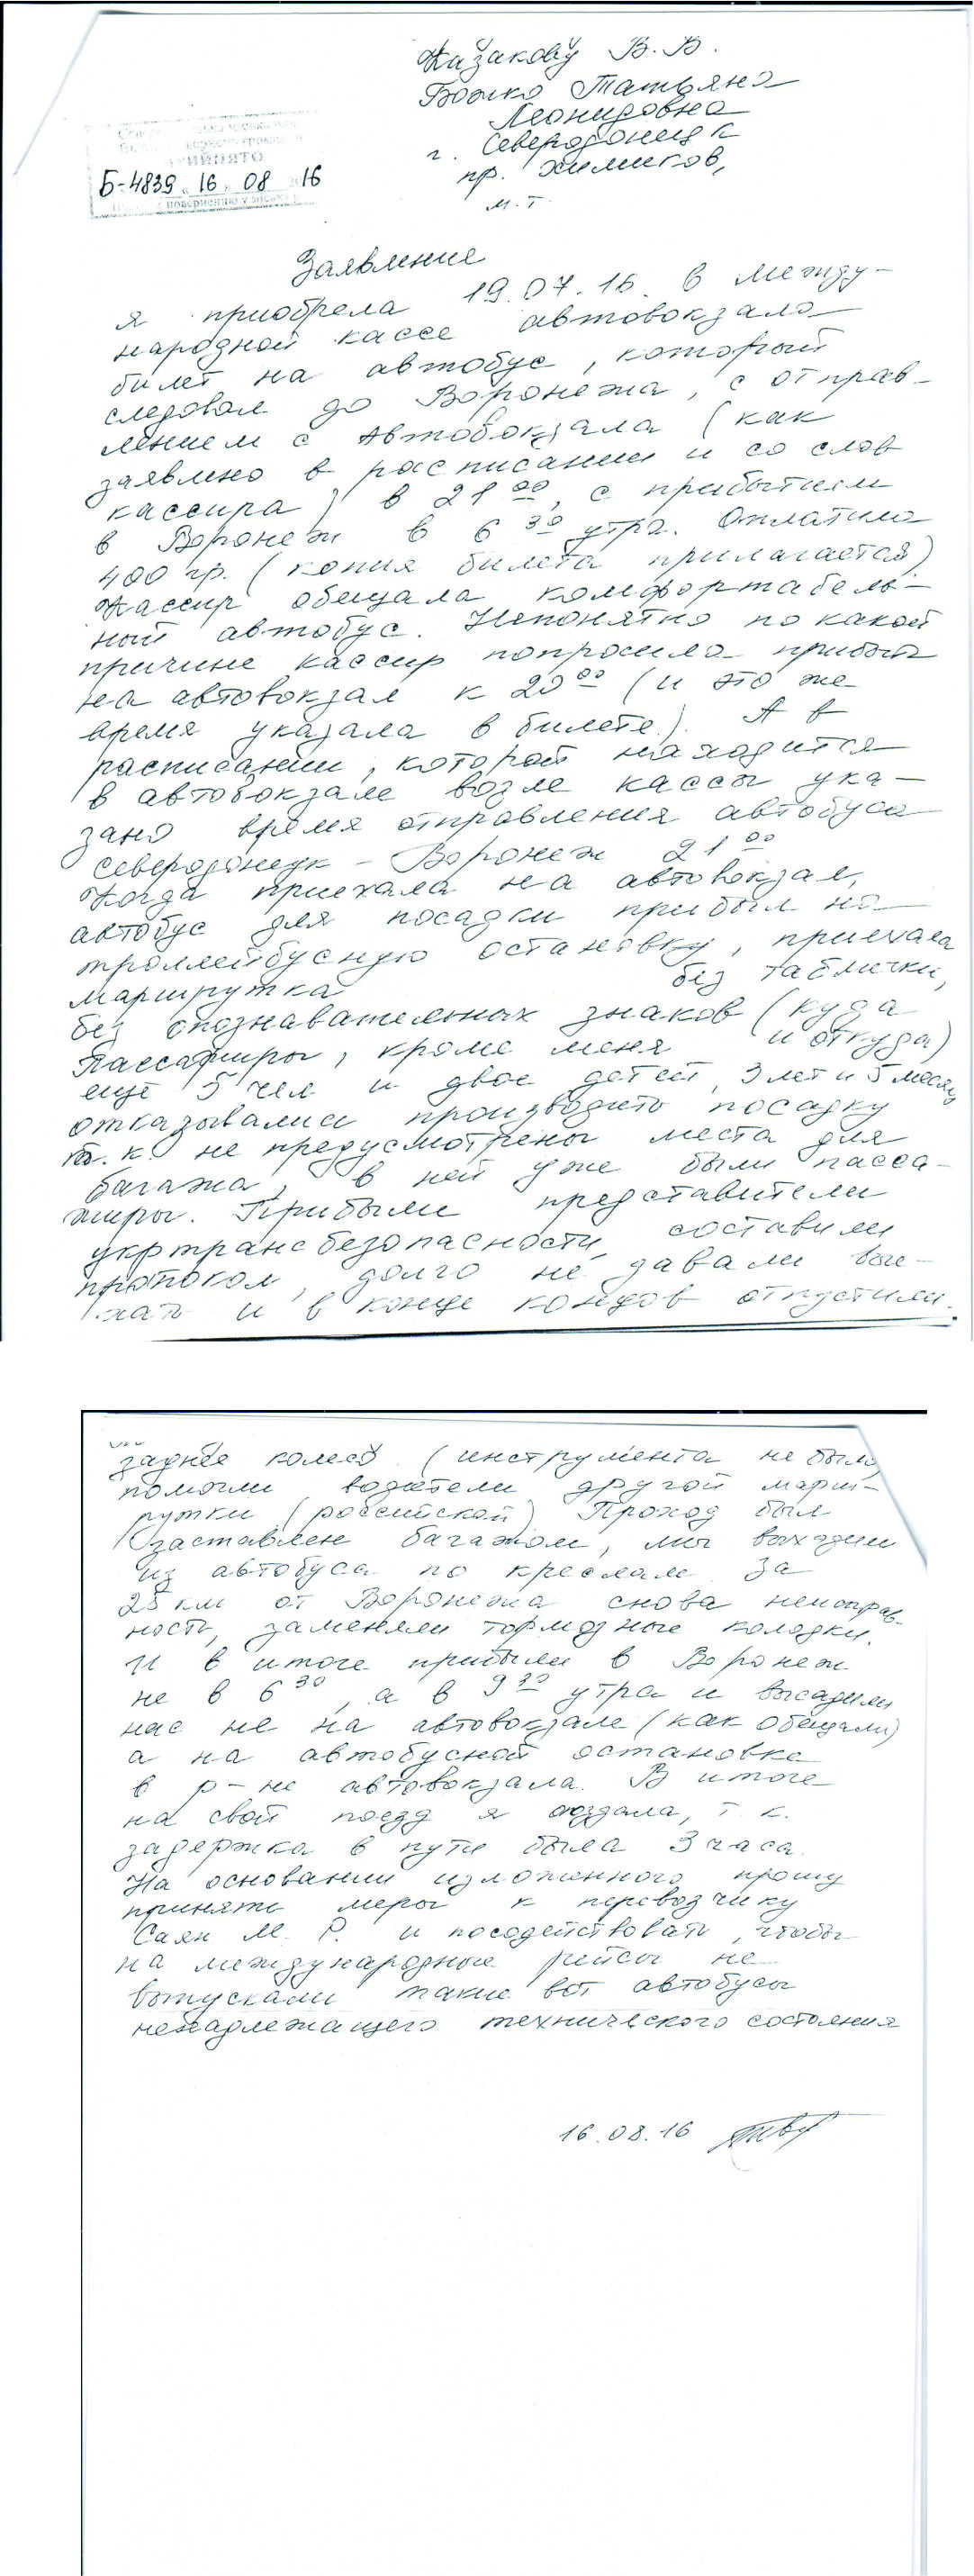 Казакову В. В.
Божко Татьяна
Леонидовна
г. Северодонецк
пр. Химиков,
м. т.
ПРИЙНЯТО
Б-4839 16 08 16
поверненню у міську
Заявление
я приобрела 19.07.16. в между-
народной кассе автовокзала
билет на автобус, который
следовал до Воронежа, с отправ-
лением с автовокзала (как
заявлено в расписании и со слов
кассира) в 21 00, с прибытием
в Воронеж в 6 30 утра. Оплатила
400 гр. (копия билета прилагается)
Кассир обещала комфортабель-
ный автобус. Непонятно по какой
причине кассир попросила прибыть
на автовокзал к 20 00 (и это же
время указала в билете). А в
расписании, которой находится
в автовокзале возле кассы ука-
зано время отправления автобуса
Северодонецк - Воронеж 21 00
Когда приехала на автовокзал,
автобус для посадки прибыл на
троллейбусную остановку, приехала
маршрутка без таблички,
без опознавательных знаков (куда
и откуда)
Пассажиры, кроме меня
еще 5 чел и двое детей, 3 лет и 5 месяц
отказывались производить посадку
т. к. не предусмотрены места для
багажа, в ней уже были пасса-
жиры. Прибыли представители
укртрансбезопасности, составили
протокол, долго не давали вые-
хать и в конце концов отпустили.
заднее колесо (инструмента не было,
помогли водители другой марш-
рутки (российской) Проход был
заставлен багажом, мы выходили
из автобуса по креслам. За
25 км от Воронежа снова неисправ-
ность, заменяли тормозные колодки.
И в итоге прибыли в Воронеж
не в 6 30, а в 9 30 утра и высадили
нас не на автовокзале (как обещали)
а на автобусной остановке
в р-не автовокзала. В итоге
на свой поезд я опоздала, т. к.
задержка в пути была 3 часа.
На основании изложенного прошу
принять меры к перевозчику
Саян М. Р. и посодействовать, чтобы
на международные рейсы не
выпускали такие вот автобусы
ненадлежащего технического состояния
16.08.16